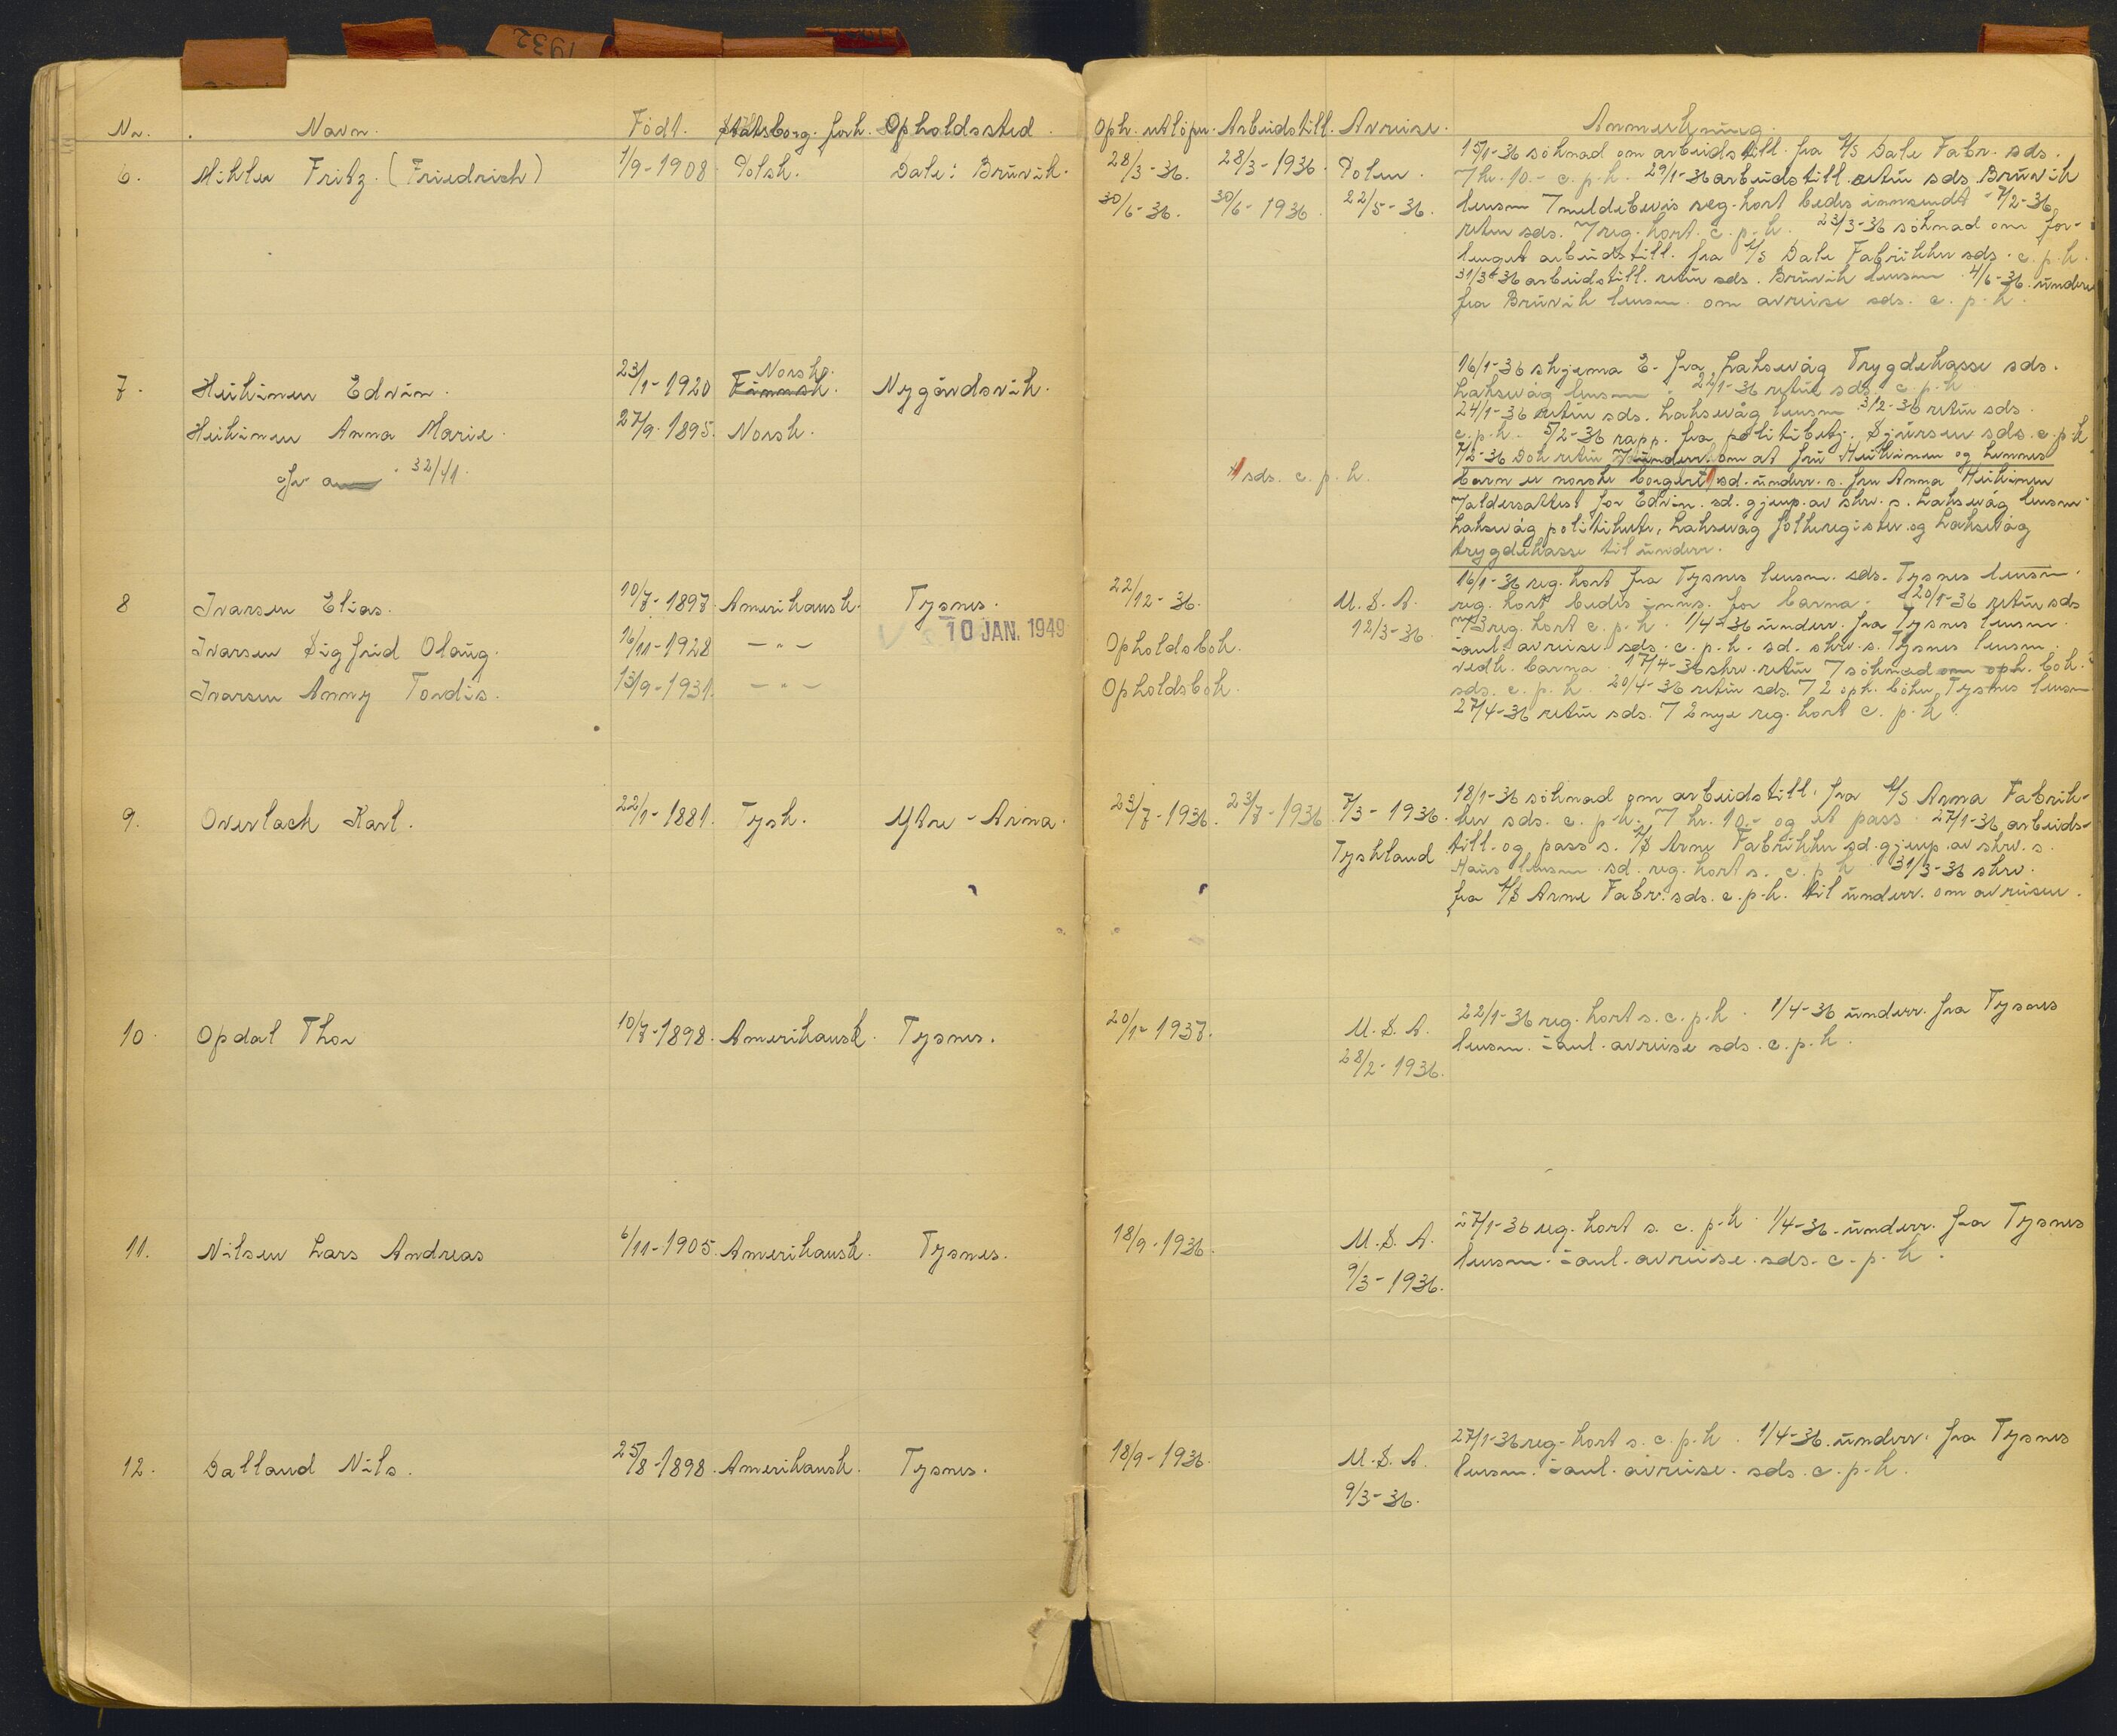 1932
Nr. Navn. Født. Statsborg. forh. Opholdssted. Oph. utløper. Arbeidstill. Avreise. Anmerkning.
6. Mihler Fritz. (Friedrich) 1/9-1908. Polsk. Dale: Bruvik. 28/3-36. 28/3-1936. Polen.
30/6-36. 30/6-1936. 22/5-36.
15/1-36 søknad om arbeidstill. fra A/S Dale Fabr. sds.
7 kr. 10.- c. p. k. 29/1-36 arbeidstill. retur sds. Bruvik
lensm 7 meldebevis reg. kort bedes innsendt 7/2-36
retur sds. 7 reg. kort. c. p. k. 23/3-36 søknad om for-
lenget arbeidstill. fra A/S Dale Fabrikker sds. c. p. k.
31/3-36 arbeidstill. retur sds. Bruvik lensm 4/6-36. underr
fra Bruvik lensm. om avreise sds. c. p. k.
7. Heikinen Edvin. 23/1-1920 Finnsk. Norsk. Nygårdsvik.
Heikinen Anna Marie. 27/9-1895. Norsk.
32/41.
# sds. c. p. k.
16/1-36 skjema E. fra Laksevåg Trygdekasse sds.
Laksevåg lensm. 22/1-36 retur sds. c. p. k
24/1-36 retur sds. Laksevåg lensm 3/2-36 retur sds.
c. p. k. 5/2-36 rapp. fra politibetj. Sjursen sds. c. p. k
7/2-36 Dok retur underr. om at fru Heikinen og hennes
barn er norske borgere # sd. underr. s. fru Anna Heikinen
7 aldersattest for Edvin. sd. gjenp. av skr. s. Laksevåg lensm.
Laksevåg politikontor, Laksevåg folkeregister og Laksevåg
trygdekasse til underr.
8 Ivarsen Elias. 10/7-1897. Amerikansk. Tysnes. 22/12-36. U. S. A.
10 JAN. 1949 12/3-36.
Ivarsen Sigfrid Olaug. 16/11-1928 - " - Opholdsbok.
Ivarsen Anny Tordis. 13/9-1931. - " - Opholdsbok.
16/1-36 reg. kort fra Tysnes lensm. sds. Tysnes lensm.
reg. kort bedes inns. for barna. 20/1-36 retur sds
7 3 reg. kort c. p. k. 1/4-36 underr. fra Tysnes lensm.
- anl. avreise sds. c. p. k. sd. skr. s. Tysnes lensm.
vedk. barna. 17/4-36 skr. retur 7 søknad om oph. bok.
sds. c. p. k. 20/4-36 retur sds. 7 2 oph. bøker Tysnes lensm
27/4-36 retur sds. 7 2 nye reg. kort c. p. k.
9. Overlach Karl. 22/1-1881. Tysk. Ytre-Arna. 23/7-1936. 23/7-1936 7/3-1936.
Tyskland
18/1-36 søknad om arbeidstill. fra A/S Arna Fabrik-
ker sds. c. p. k. 7 kr. 10.- og et pass. 27/1-36 arbeids-
till. og pass s. A/S Arne Fabrikker sd. gjenp. av skr. s.
Haus lensm. sd. reg. kort s. c. p. k 31/3-36 skr.
fra A/S Arne Fabr. sds. c. p. k. til underr. om avreisen.
10. Opdal Thor 10/7-1898. Amerikansk. Tysnes. 20/1-1937. U. S. A.
28/2-1936.
22/1-36 reg. kort s. c. p. k. 1/4-36 underr. fra Tysnes
lensm. - anl. avreise sds. c. p. k.
11. Nilsen Lars Andreas 6/11-1905. Amerikansk. Tysnes. 18/9-1936. U. S. A.
9/3-1936.
27/1-36 reg. kort s. c. p. k. 1/4-36. underr. fra Tysnes
lensm. - anl. avreise. sds. c. p. k.
12. Dalland Nils. 25/8-1898. Amerikansk. Tysnes. 18/9-1936. U. S. A.
9/3-36.
27/1-36 reg. kort s. c. p. k. 1/4-36. underr. fra Tysnes
lensm. - anl. avreise. sds. c. p. k.